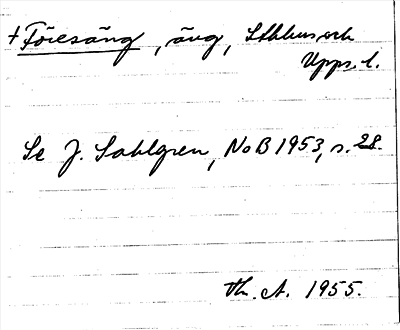 +Föresäng, äng, Sthlms och
Upps. l.
Se J. Sahlgren, NoB 1953, s. 28.
Th. A. 1955.